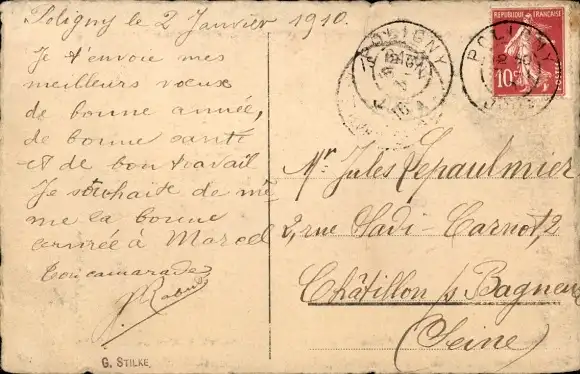 Poligny le 2 Janvier 1910.
Je t'envoie mes
meilleurs vœux
de bonne année,
de bonne santé
et de bon travail
Je souhaite de mê
me la bonne
année à Marcel
Ton camarade
G. STILKE
POLIGNY
POLIGNY
JURA
REPUBLIQUE FRANÇAISE
10c
POSTES
Mr Jules Lepaulmier
2, rue Sadi-Carnot, 2
Châtillon s/ Bagneux
(Seine)